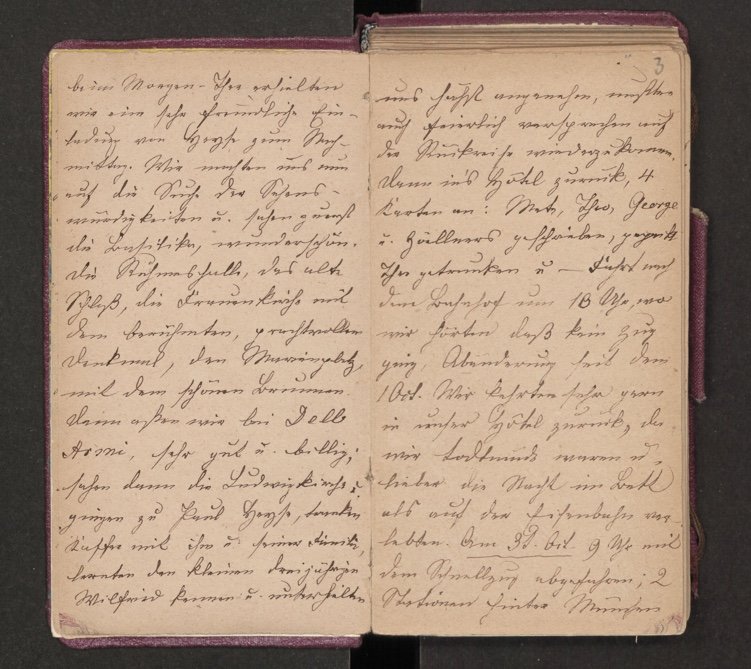 beim Morgen-Thee erhielten
wir eine sehr freundliche Ein-
ladung von Heyse zum Nach-
mittag. Wir machten uns nun
auf die Suche der Sehens-
würdigkeiten u. sahen zuerst
die Basilika, wunderschön.
die Ruhmeshalle, das alte
Schloß, die Frauenkirche mit
dem berühmten, prachtvollen
Denkmal, den Marienplatz,
mit dem schönen Brunnen.
Dann aßen wir bei Dell
Armi, sehr gut u. billig;
sahen dann die Ludwigskirche u.
gingen zu Paul Heyse, tranken
Kaffee mit ihm u. seiner Familie,
lernten den kleinen dreijährigen
Wilfried kennen u. unterhielten
3
uns höchst angenehm, mußten
auch feierlich versprechen auf
der Rückreise wiederzukommen.
Dann in's Hôtel zurück, 4
Karten an: Metz, Theo, George
u. Zöllners geschrieben, gepackt
Thee getrunken u – Fahrt nach
dem Bahnhof um 10 Uhr, wo
wir hörten daß kein Zug
ging, Abänderung seit dem
1 Oct. Wir kehrten sehr gern
in unser Hôtel zurück, da
wir todtmüde waren u.
lieber die Nacht im Bett
als auf der Eisenbahn ver-
lebten. Am 3t. Oct. 9 Uhr mit
dem Schnellzug abgefahren; 2
Stationen hinter München